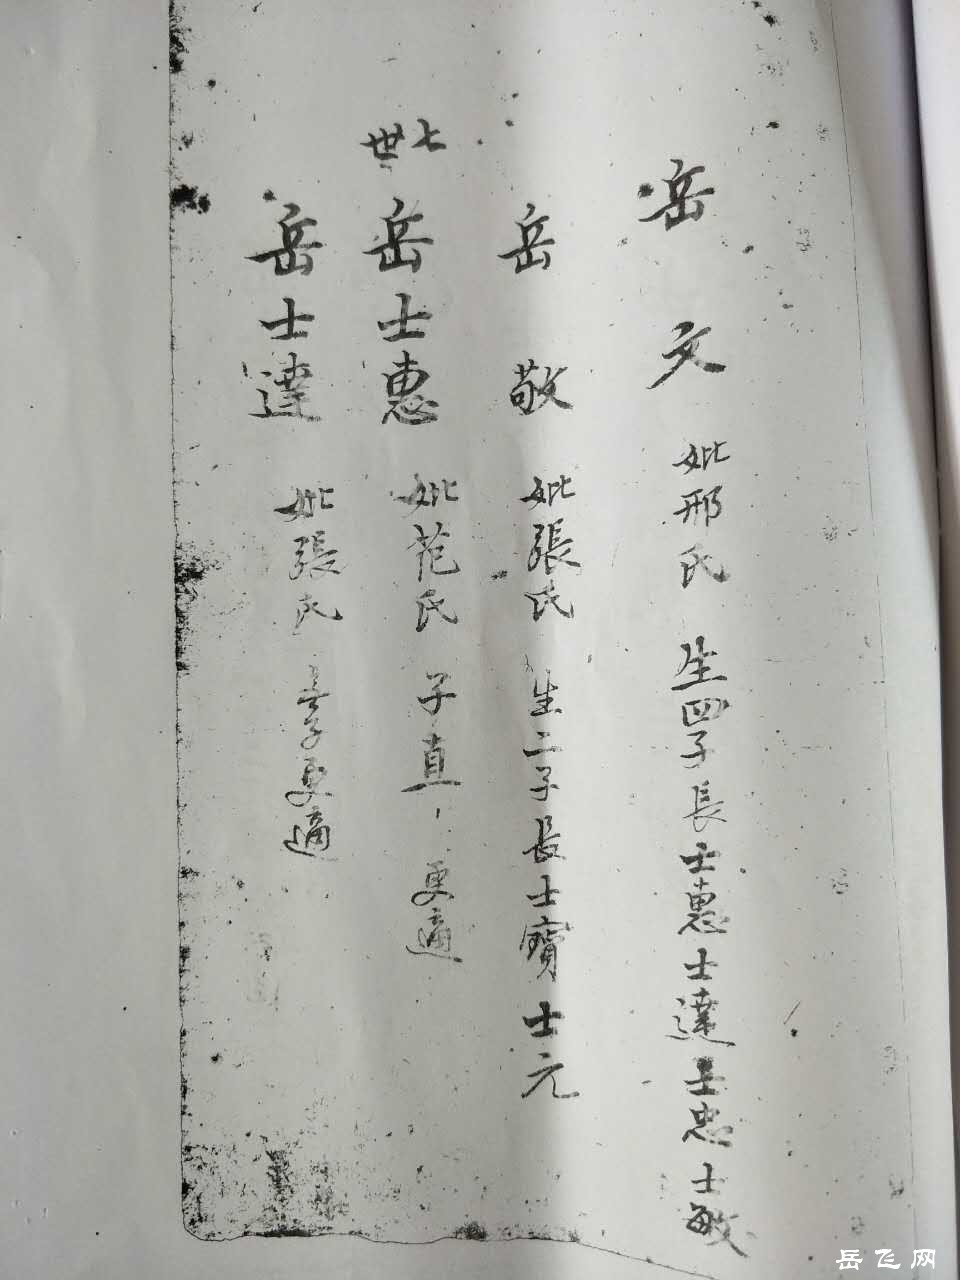 岳文 妣邢氏 生四子長士惠士達士忠士敏
岳敬 妣張氏 生二子長士寳士元
七世
岳士惠 妣范氏 子直 更適
岳士達 妣張氏 無子更適
岳飞网